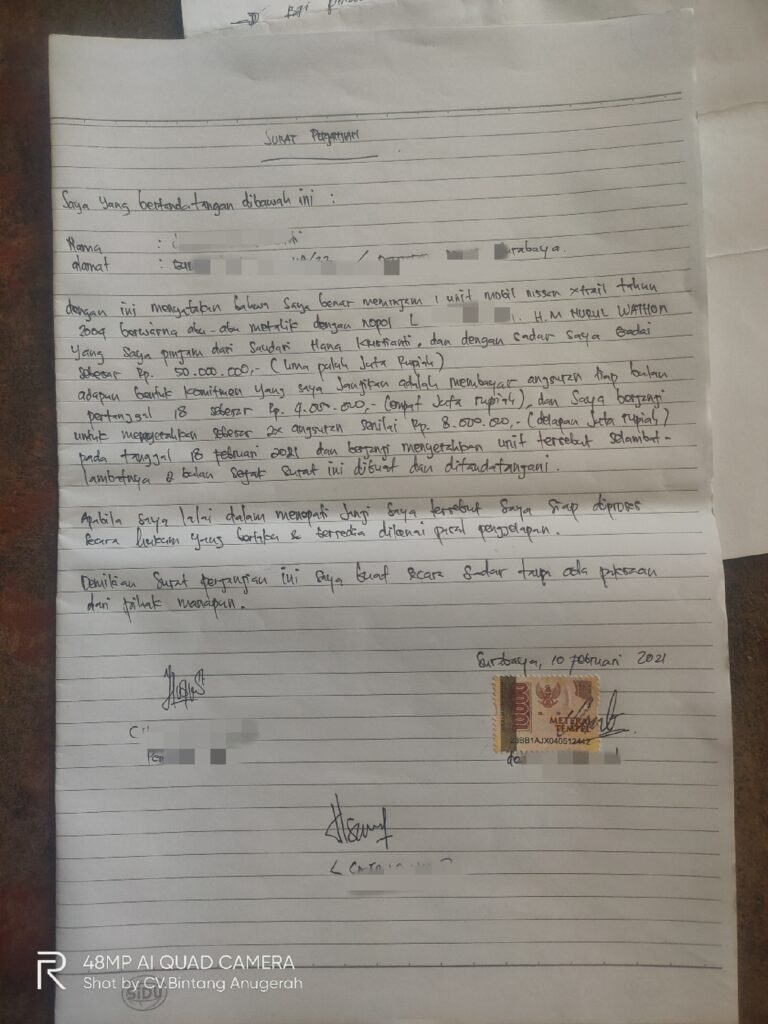 SURAT PERJANJIAN
Saya yang bertandatangan dibawah ini :
Nama :
Alamat : Surabaya.
dengan ini menyatakan bahwa saya benar meminjam 1 unit mobil nissan xtrail tahun
2009 berwarna abu-abu metalik dengan nopol L H.M NURUL WATHON
yang saya pinjam dari Saudari Hana Kristianti, dan dengan sadar saya
sebesar Rp. 50.000.000,- (lima puluh Juta Rupiah)
adapun bentuk komitmen yang saya janjikan adalah membayar angsuran tiap bulan
pertanggal 18 sebesar Rp. 4.000.000,- (empat Juta rupiah), dan Saya berjanji
untuk menyerahkan sebesar 2x angsuran senilai Rp. 8.000.000,- (delapan Juta rupiah)
pada tanggal 18 februari 2021 dan berjanji menyerahkan unit tersebut selambat-
lambatnya bulan sejak surat ini dibuat dan ditandatangani.
Apabila saya lalai dalam menepati Janji saya tersebut Saya siap diproses
secara hukum yang berlaku & bersedia dikenai pasal penggelapan.
Demikian Surat perjanjian ini saya buat secara Sadar tanpa ada paksaan
dari pihak manapun.
Surabaya, 10 Februari 2021
10000
METERAI
TEMPEL
28BB1AJX040512442
R 48MP AI QUAD CAMERA
Shot by CV.Bintang Anugerah
SIDU